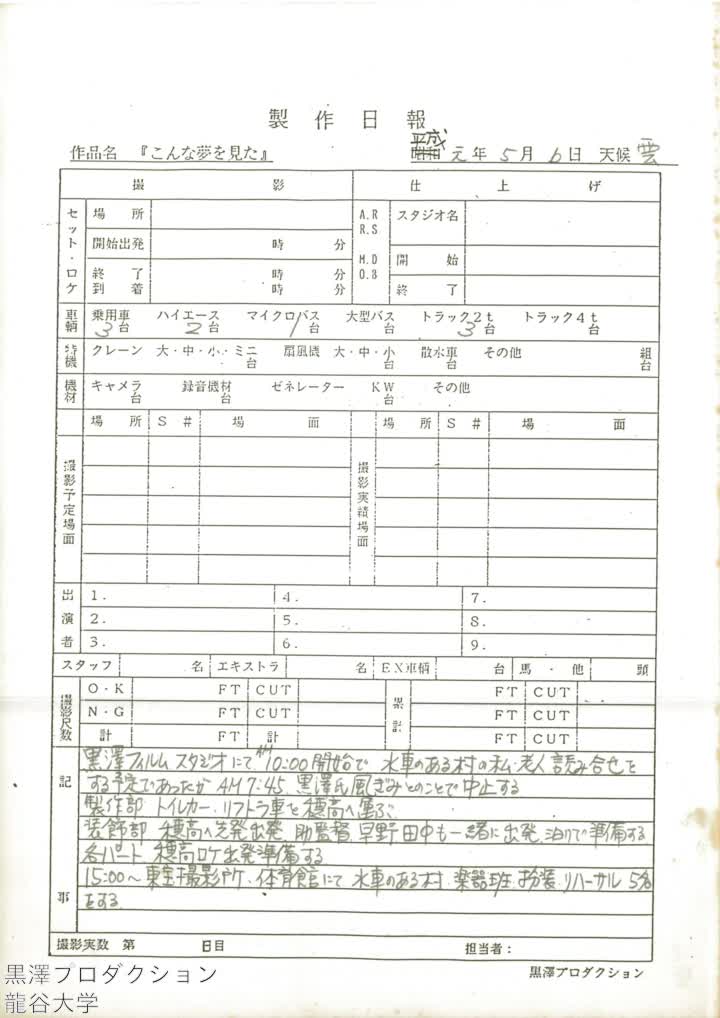 製作日報
作品名 『こんな夢を見た』 昭和 平成 元年 5月 6日 天候 雲
撮影 仕上げ
セット・ロケ 場所 A.R R.S スタジオ名
開始出発 時 分 M.D O.B 開始
終了 時 分 終了
到着 時 分
車輌 乗用車 3台 ハイエース 2台 マイクロバス 1台 大型バス 台 トラック2t 3台 トラック4t 台
特機 クレーン 大・中・小・ミニ 台 扇風機 大・中・小 台 散水車 台 その他 組 台
機材 キャメラ 台 録音機材 台 ゼネレーター KW 台 その他
場所 S# 場面 場所 S# 場面
撮影予定場面 撮影実績場面
出演者 1. 4. 7.
2. 5. 8.
3. 6. 9.
スタッフ 名 エキストラ 名 EX車輌 台 馬・他 頭
撮影尺数 O・K FT CUT 累計 FT CUT
N・G FT CUT FT CUT
計 FT 計 FT CUT
記事
黒澤フィルムスタジオにてAM10:00開始で 水車のある村の私・老人 読み合せを
する予定であったがAM7:45、黒澤氏風ぎみとのことで中止する
製作部 トイルカー・リフトラ車を穂高へ運ぶ
装飾部 穂高へ先発出発、助監督、早野田中も一緒に出発、泊りで準備する
各パート 穂高ロケ出発準備する
15:00〜東宝撮影所・体育館にて 水車のある村、楽器班、扮装、リハーサル 5名
をする
撮影実数 第 日目 担当者：
黒澤プロダクション
黒澤プロダクション
龍谷大学